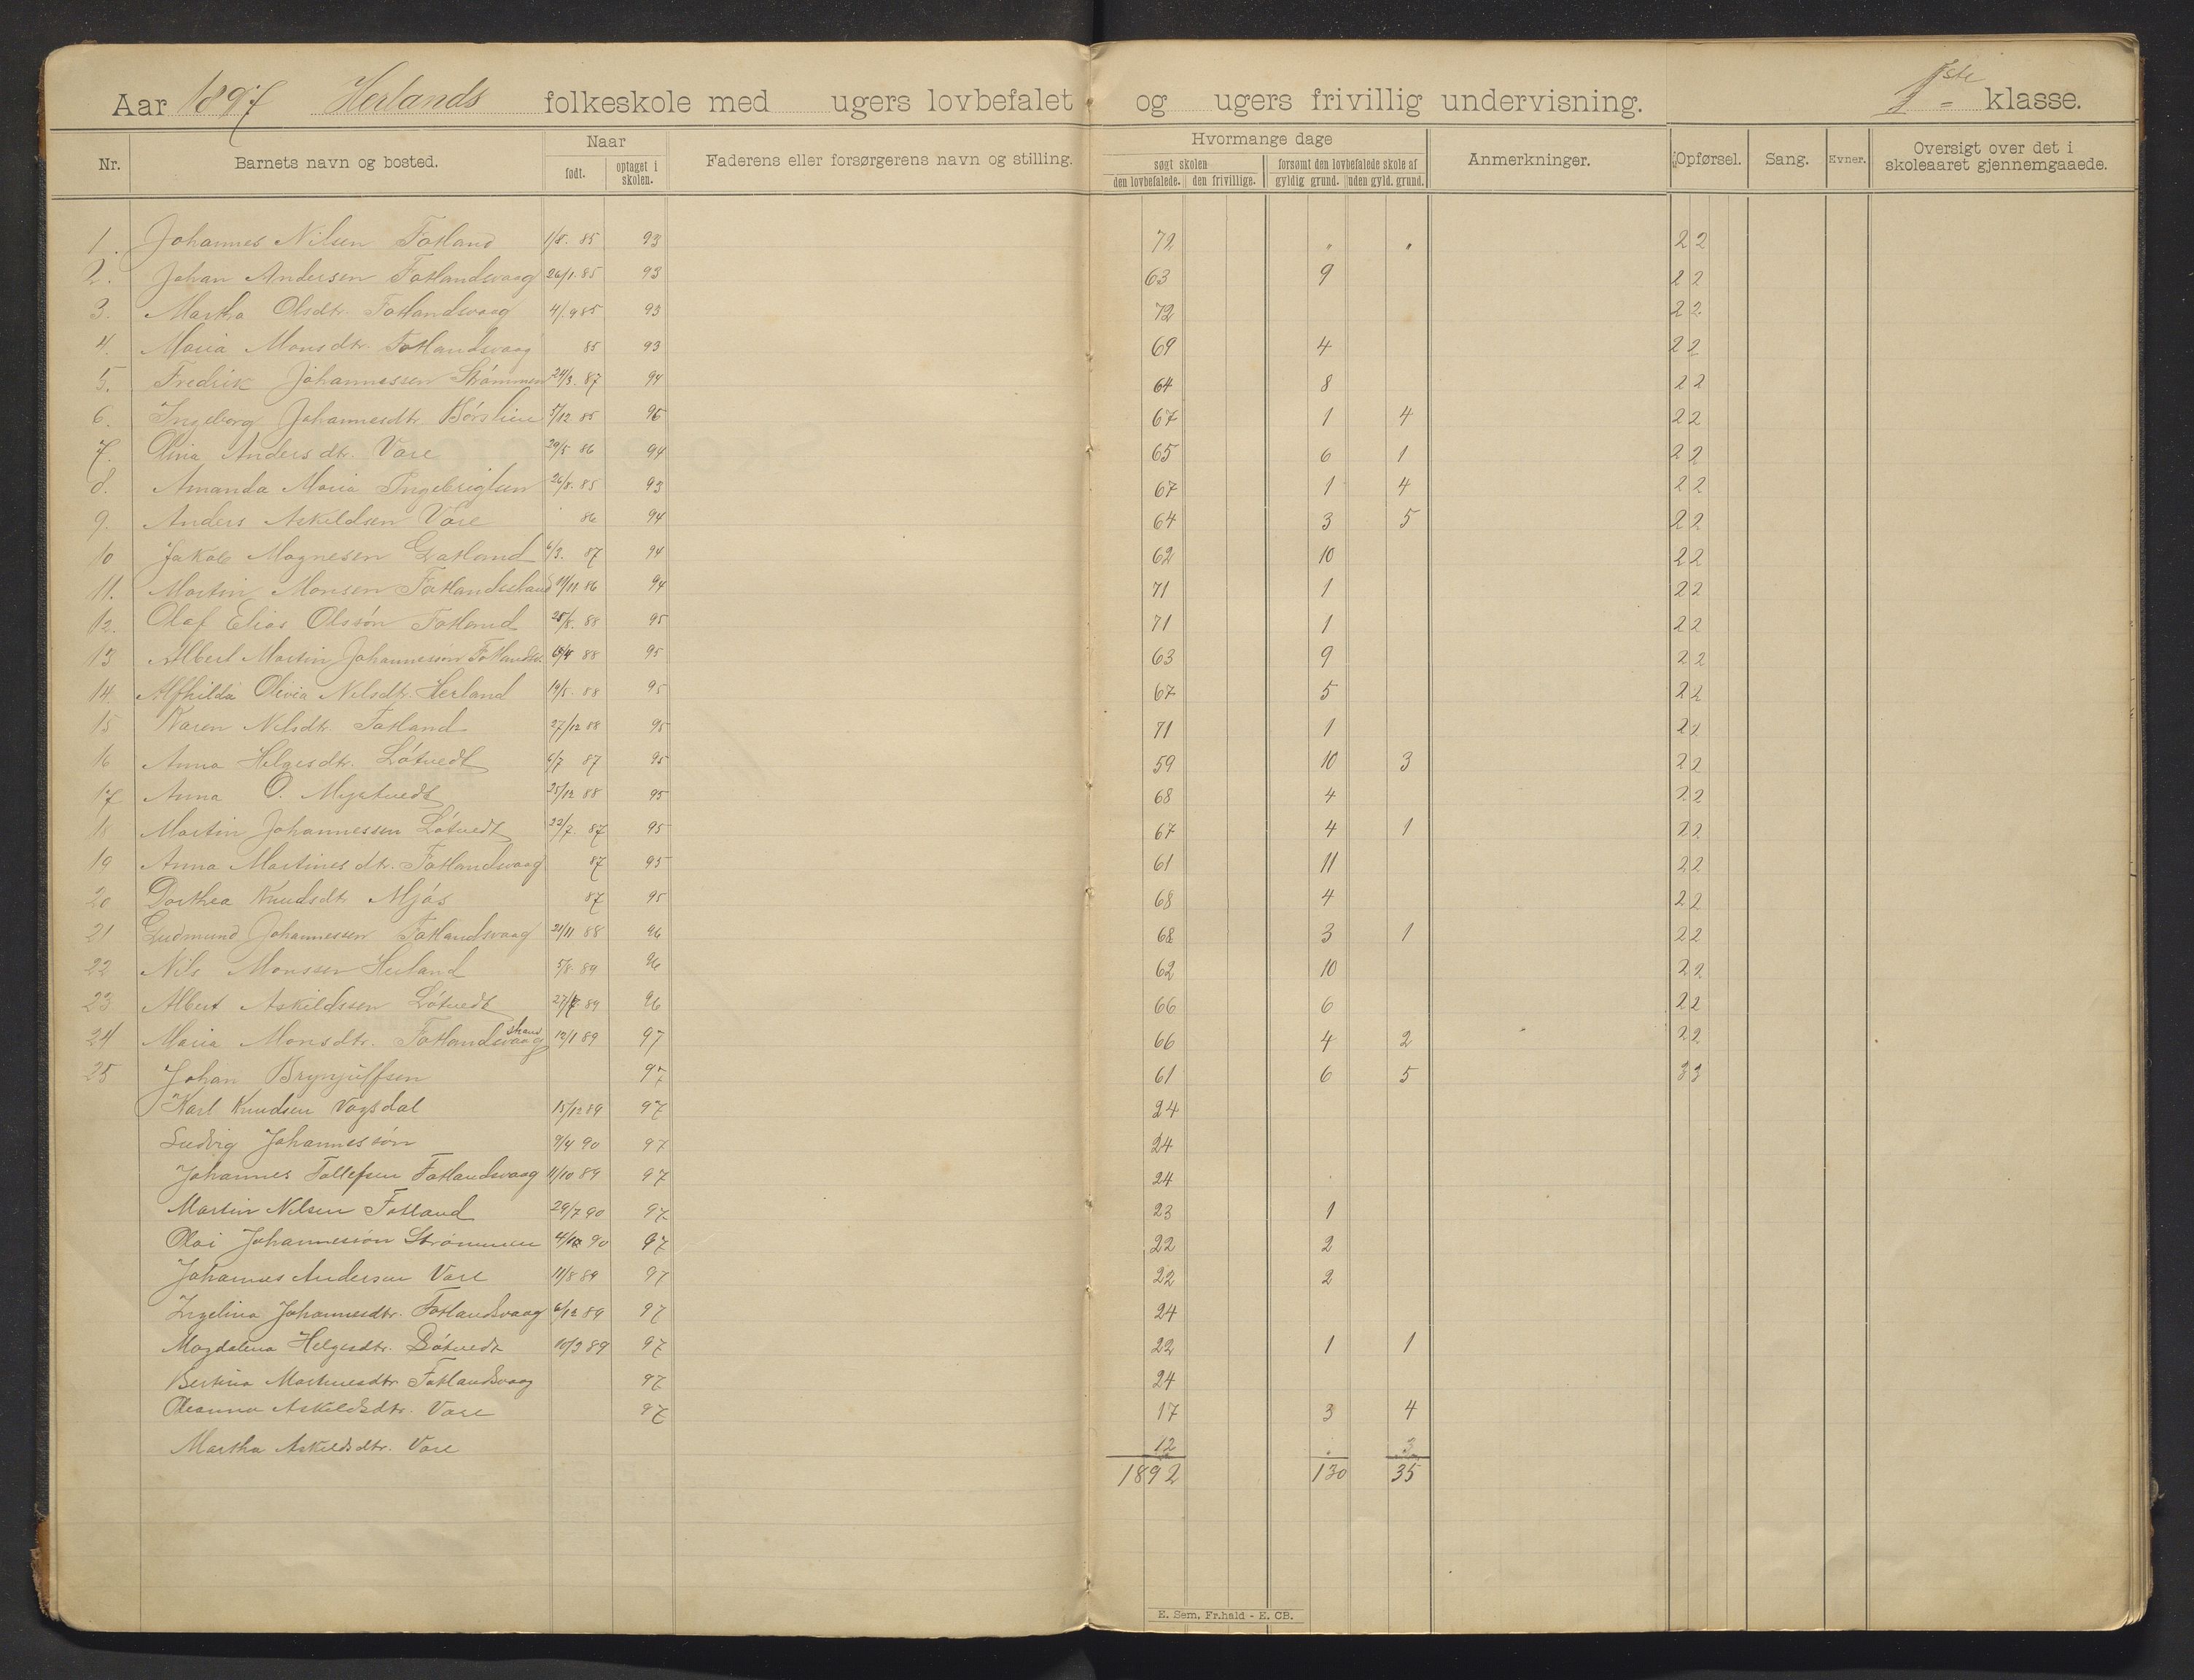 Aar 1897 Herlands folkeskole med ugers lovbefalet og ugers frivillig undervisning. 1ste klasse.
Nr. Barnets navn og bosted. Naar født. optaget i skolen. Faderens eller forsørgerens navn og stilling. Hvormange dage søgt skolen den lovbefalede. den frivillige. forsømt den lovbefalede skole af gyldig grund. uden gyld. grund. Anmerkninger. Opførsel. Sang. Evner. Oversigt over det i skoleaaret gjennemgaaede.
1. Johannes Nilsen Fotland 1/8. 85 93 72 " " 2 2
2. Johan Andersen Fotlandsvaag 26/1. 85 93 63 9 2 2
3. Martha Olsdtr. Fotlandsvaag 4/9 85 93 72 2 2
4. Maria Monsdtr. Fotlandsvaag 85 93 69 4 2 2
5. Fredrik Johannessen Strømmen 24/3. 87 94 64 8 2 2
6. Ingeborg Johannesdtr. 5/12 85 96 67 1 4 2 2
7. Olina Andersdtr. Vare 29/5 86 94 65 6 1 2 2
8. Amanda Maria Ingebrigtsen 26/8. 85 93 67 1 4 2 2
9. Anders Askildsen Vare 86 94 64 3 5 2 2
10 Jakob Magnesen 6/3. 87 94 62 10 2 2
11. Martin Monsen 11/11 86 94 71 1 2 2
12. Olaf Elias Olssøn Fotland 25/8. 88 95 71 1 2 2
13 Albert Martin Johannessøn Fotlandsv. 88 95 63 9 2 2
14. Alfhilda Olivia Nilsdtr. Herland 19/5. 88 95 67 5 2 2
15 Karen Nilsdtr. Fotland 27/12 88 95 71 1 2 2
16 Anna Helgesdtr. Løtvedt 6/7 87 95 59 10 3 2 2
17 Anna O. Mjøtvedt 25/12 88 95 68 4 2 2
18 Martin Johannessen Løtvedt 22/7. 87 95 67 4 1 2 2
19 Anna Martinesdtr. Fotlandsvaag 87 95 61 11 2 2
20 Dorthea Knudsdtr Mjøs 87 95 68 4 2 2
21 Gudmund Johannessen Fotlandsvaag 21/11 88 96 68 3 1 2 2
22 Nils Monssen Herland 5/8. 89 96 62 10 2 2
23. Albert Askildssen Løtvedt 27/ 89 96 66 6 2 2
24 Maria Monsdtr. Fotlandsvaag 12/1 89 97 66 4 2 2 2
25 Johan Brynjulfsen 97 61 6 5 3 3
Karl Knudsen Vogsdal 15/12 89 97 24
Ludvig Johannessøn 9/4 90 97 24
Johannes Tollefsen Fotlandsvaag 11/10 89 97 24
Martin Nilsen Fotland 29/7 90 97 23 1
Olai Johannessøn Strømmen 4/10 90 97 22 2
Johannes Andersen Vare 11/8 89 97 22 2
Ingelina Johannesdtr. Fotlandsvaag 6/12 89 97 24
Magdalena Helgesdtr. Løtvedt 10/3 89 97 22 1 1
Bertina Martinesdtr Fotlandsvaag 97 24
Oleanna Askildsdtr. Vare 97 17 3 4
Martha Askildsdtr. Vare 12 " 3
1892 130 35
E. Sem, Fr.hald - E. CB.